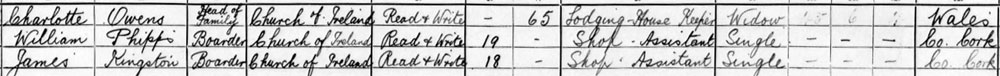 Charlotte Owens Head of Family Church of Ireland Read & Write - 65 Lodging-House Keeper Widow Wales
William Phipps Boarder Church of Ireland Read & Write 19 - Shop-Assistant Single - - - Co. Cork
James Kingston Boarder Church of Ireland Read & Write 18 - Shop-Assistant Single - - - Co. Cork